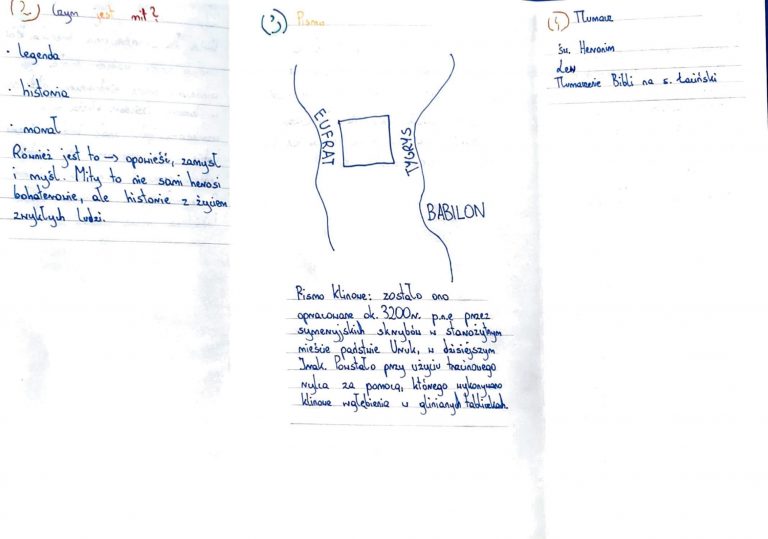 (2) Czym jest mit?
• legenda
• historia
• morał
Również jest to → opowieść, zamysł
i myśl. Mity to nie sami herosi
bohaterowie, ale historie z życiem
zwykłych ludzi.
(3) Pismo
EUFRAT
TYGRYS
BABILON
Pismo klinowe: zostało ono
opracowane ok. 3200 r. p.n.e przez
sumeryjskich skrybów w starożytnym
mieście państwie Uruk, w dzisiejszym
Irak. Powstało przy użyciu trzcinowego
rylca za pomocą, którego wykonywano
klinowe wgłębienia w glinianych tabliczkach.
Tłumacz
św. Hieronim
Lew
Tłumaczenie Bibli na j. Łaciński